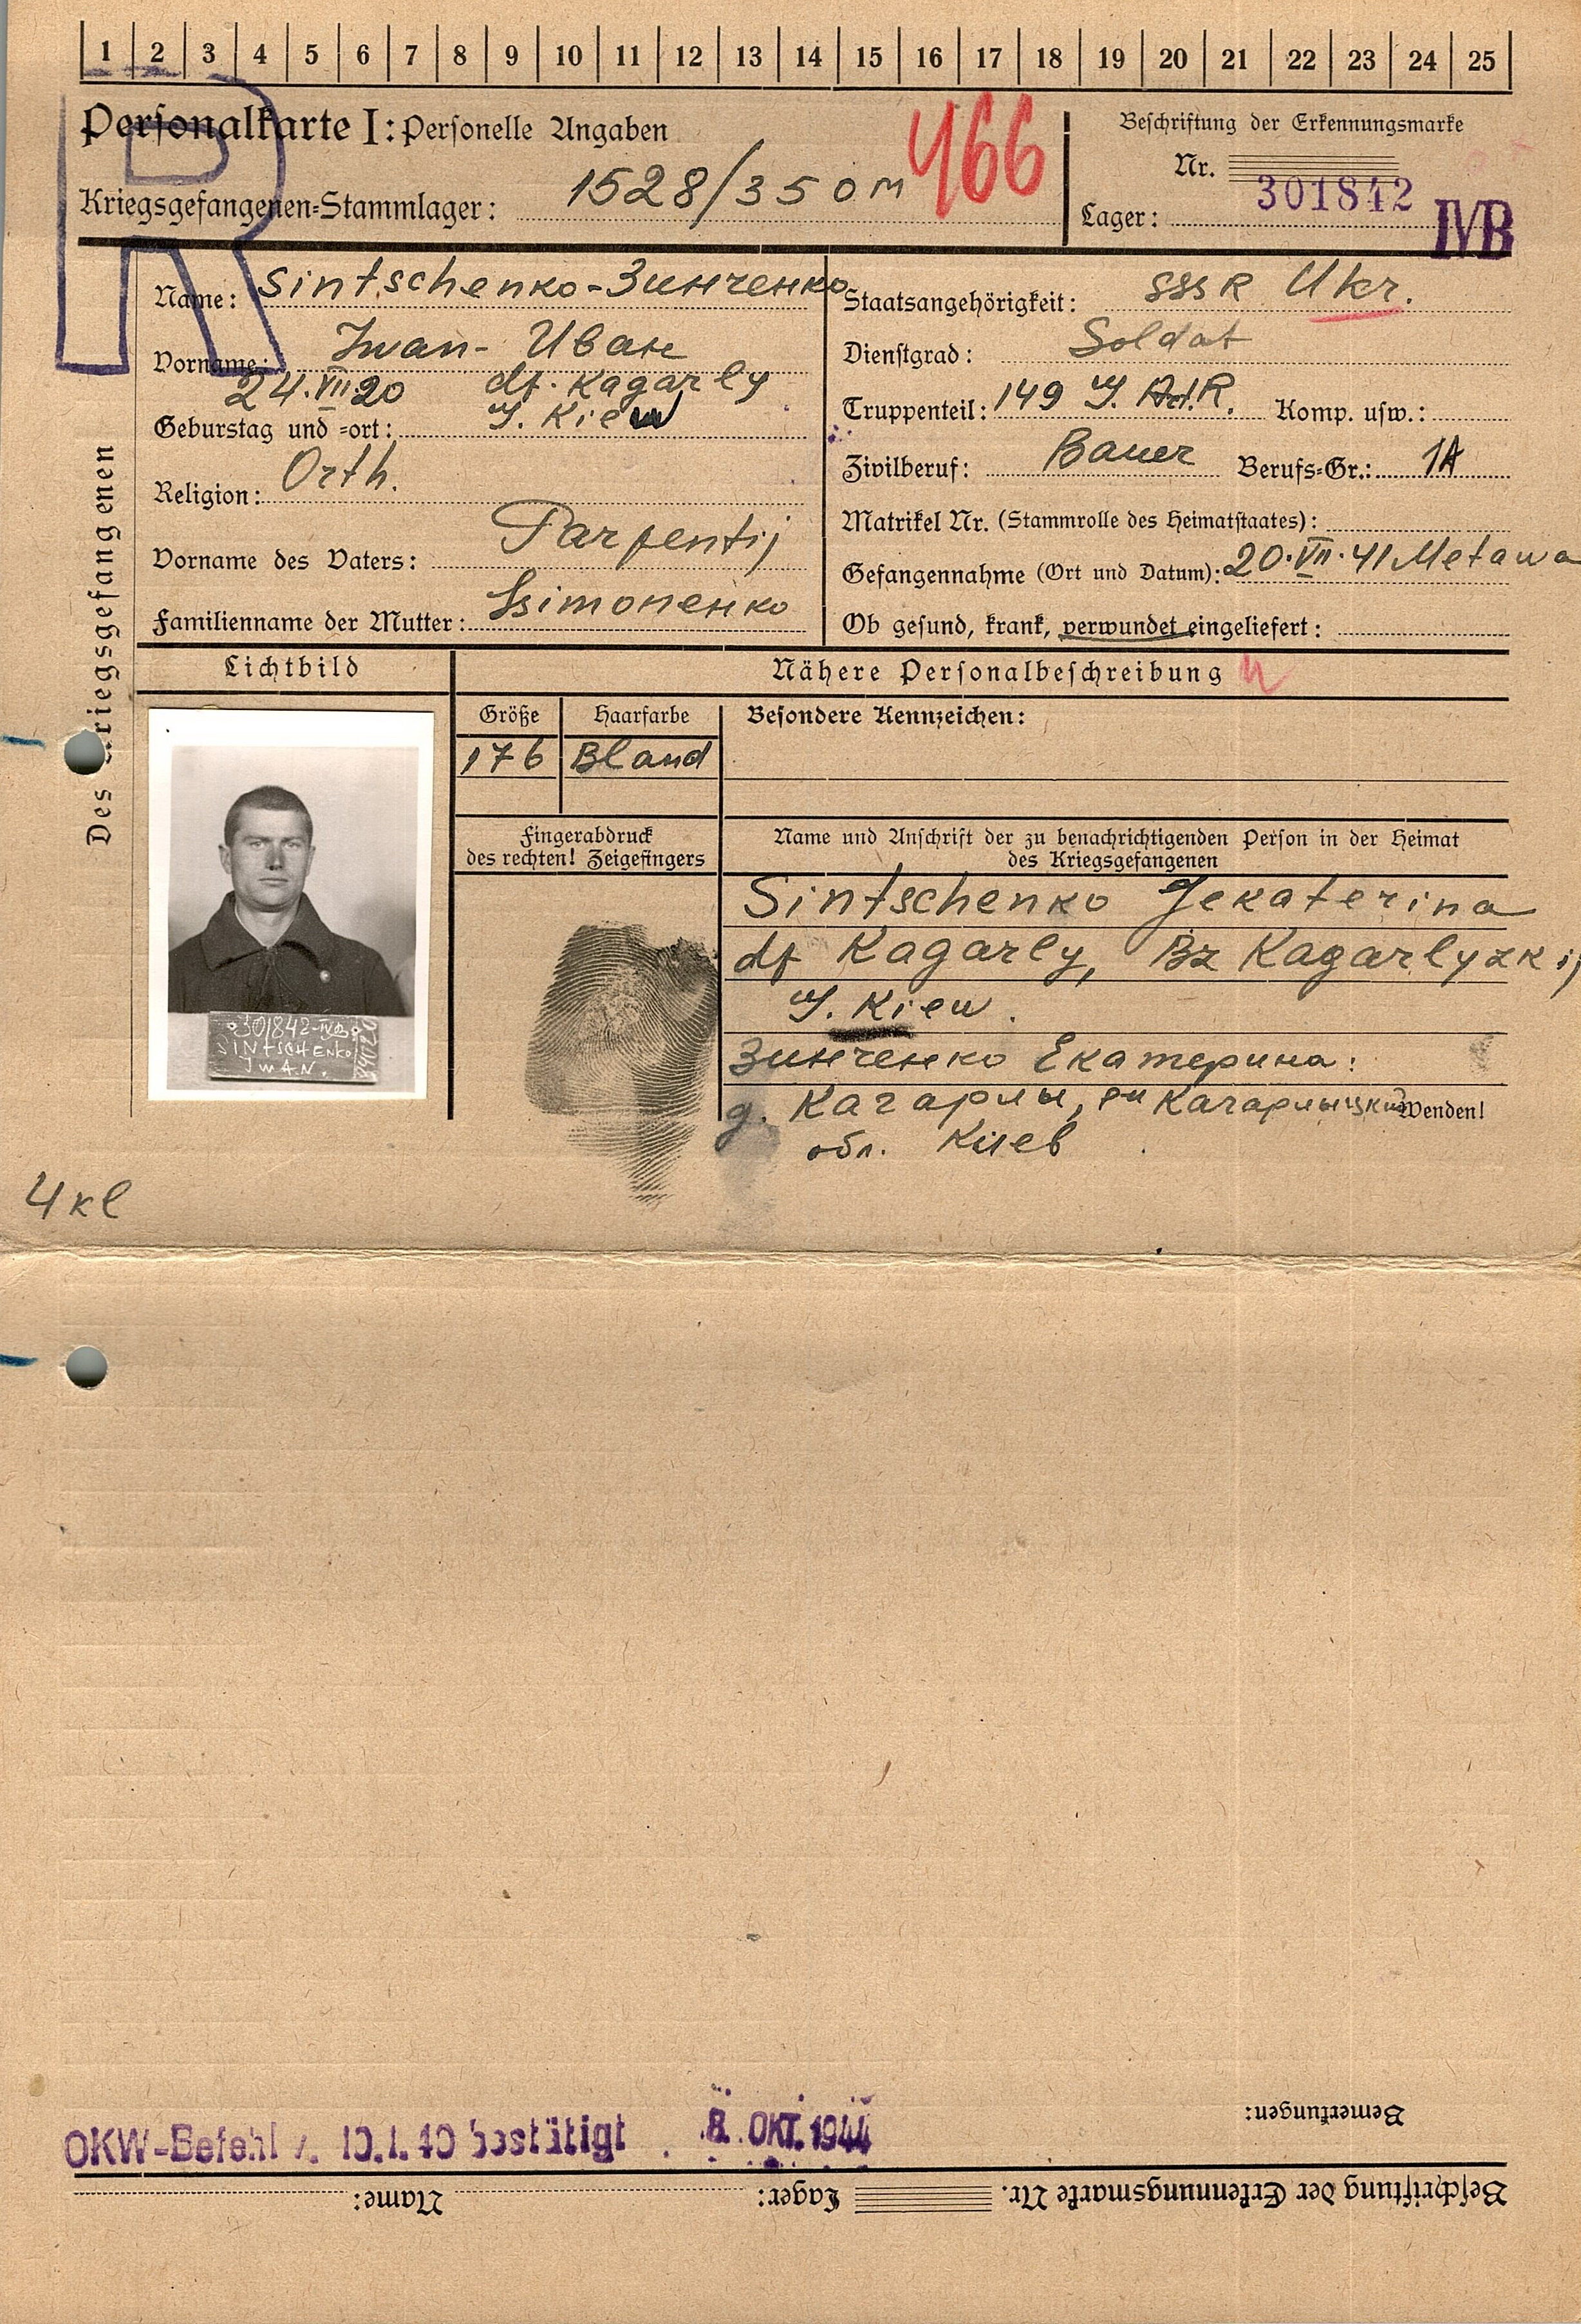 1 2 3 4 5 6 7 8 9 10 11 12 13 14 15 16 17 18 19 20 21 22 23 24 25
Personalkarte I: Personelle Angaben
466
Kriegsgefangenen-Stammlager: 1528/350 M
Beschriftung der Erkennungsmarke
Nr. 301842
Lager: IVB
R
Des Kriegsgefangenen
Name: Sintschenko-Зинченко
Vorname: Iwan- Иван
24.VII.20 df. Kagarly
Geburtstag und =ort: G. Kiew
Religion: Orth.
Vorname des Vaters: Parfentij
Familienname der Mutter: Ssimonenko
Staatsangehörigkeit: SSSR Ukr.
Dienstgrad: Soldat
Truppenteil: 149 Komp. usw.:
Zivilberuf: Bauer Berufs=Gr.: 1A
Matrikel Nr. (Stammrolle des Heimatstaates):
Gefangennahme (Ort und Datum): 20.VII.41 Metawa
Ob gesund, krank, verwundet eingeliefert:
Lichtbild
Nähere Personalbeschreibung
Größe Haarfarbe
Besondere Kennzeichen:
176 Bland
Fingerabdruck
des rechten! Zeigefingers
Name und Anschrift der zu benachrichtigenden Person in der Heimat
des Kriegsgefangenen
Sintschenko Jekaterina
df Kagarly, Bz Kagarlyzkij
G. Kiew.
Зинченко Екатерина:
д. Кагарлы, рн Кагарлыцкий
Wenden!
обл. Киев
301842-IVB
SINTSCHENKO
IWAN.
4 kl
OKW-Befehl v. 10.1.40 bestätigt 8. OKT. 1944
Bemerkungen:
Beschriftung der Erkennungsmarke Nr. Lager: Name: